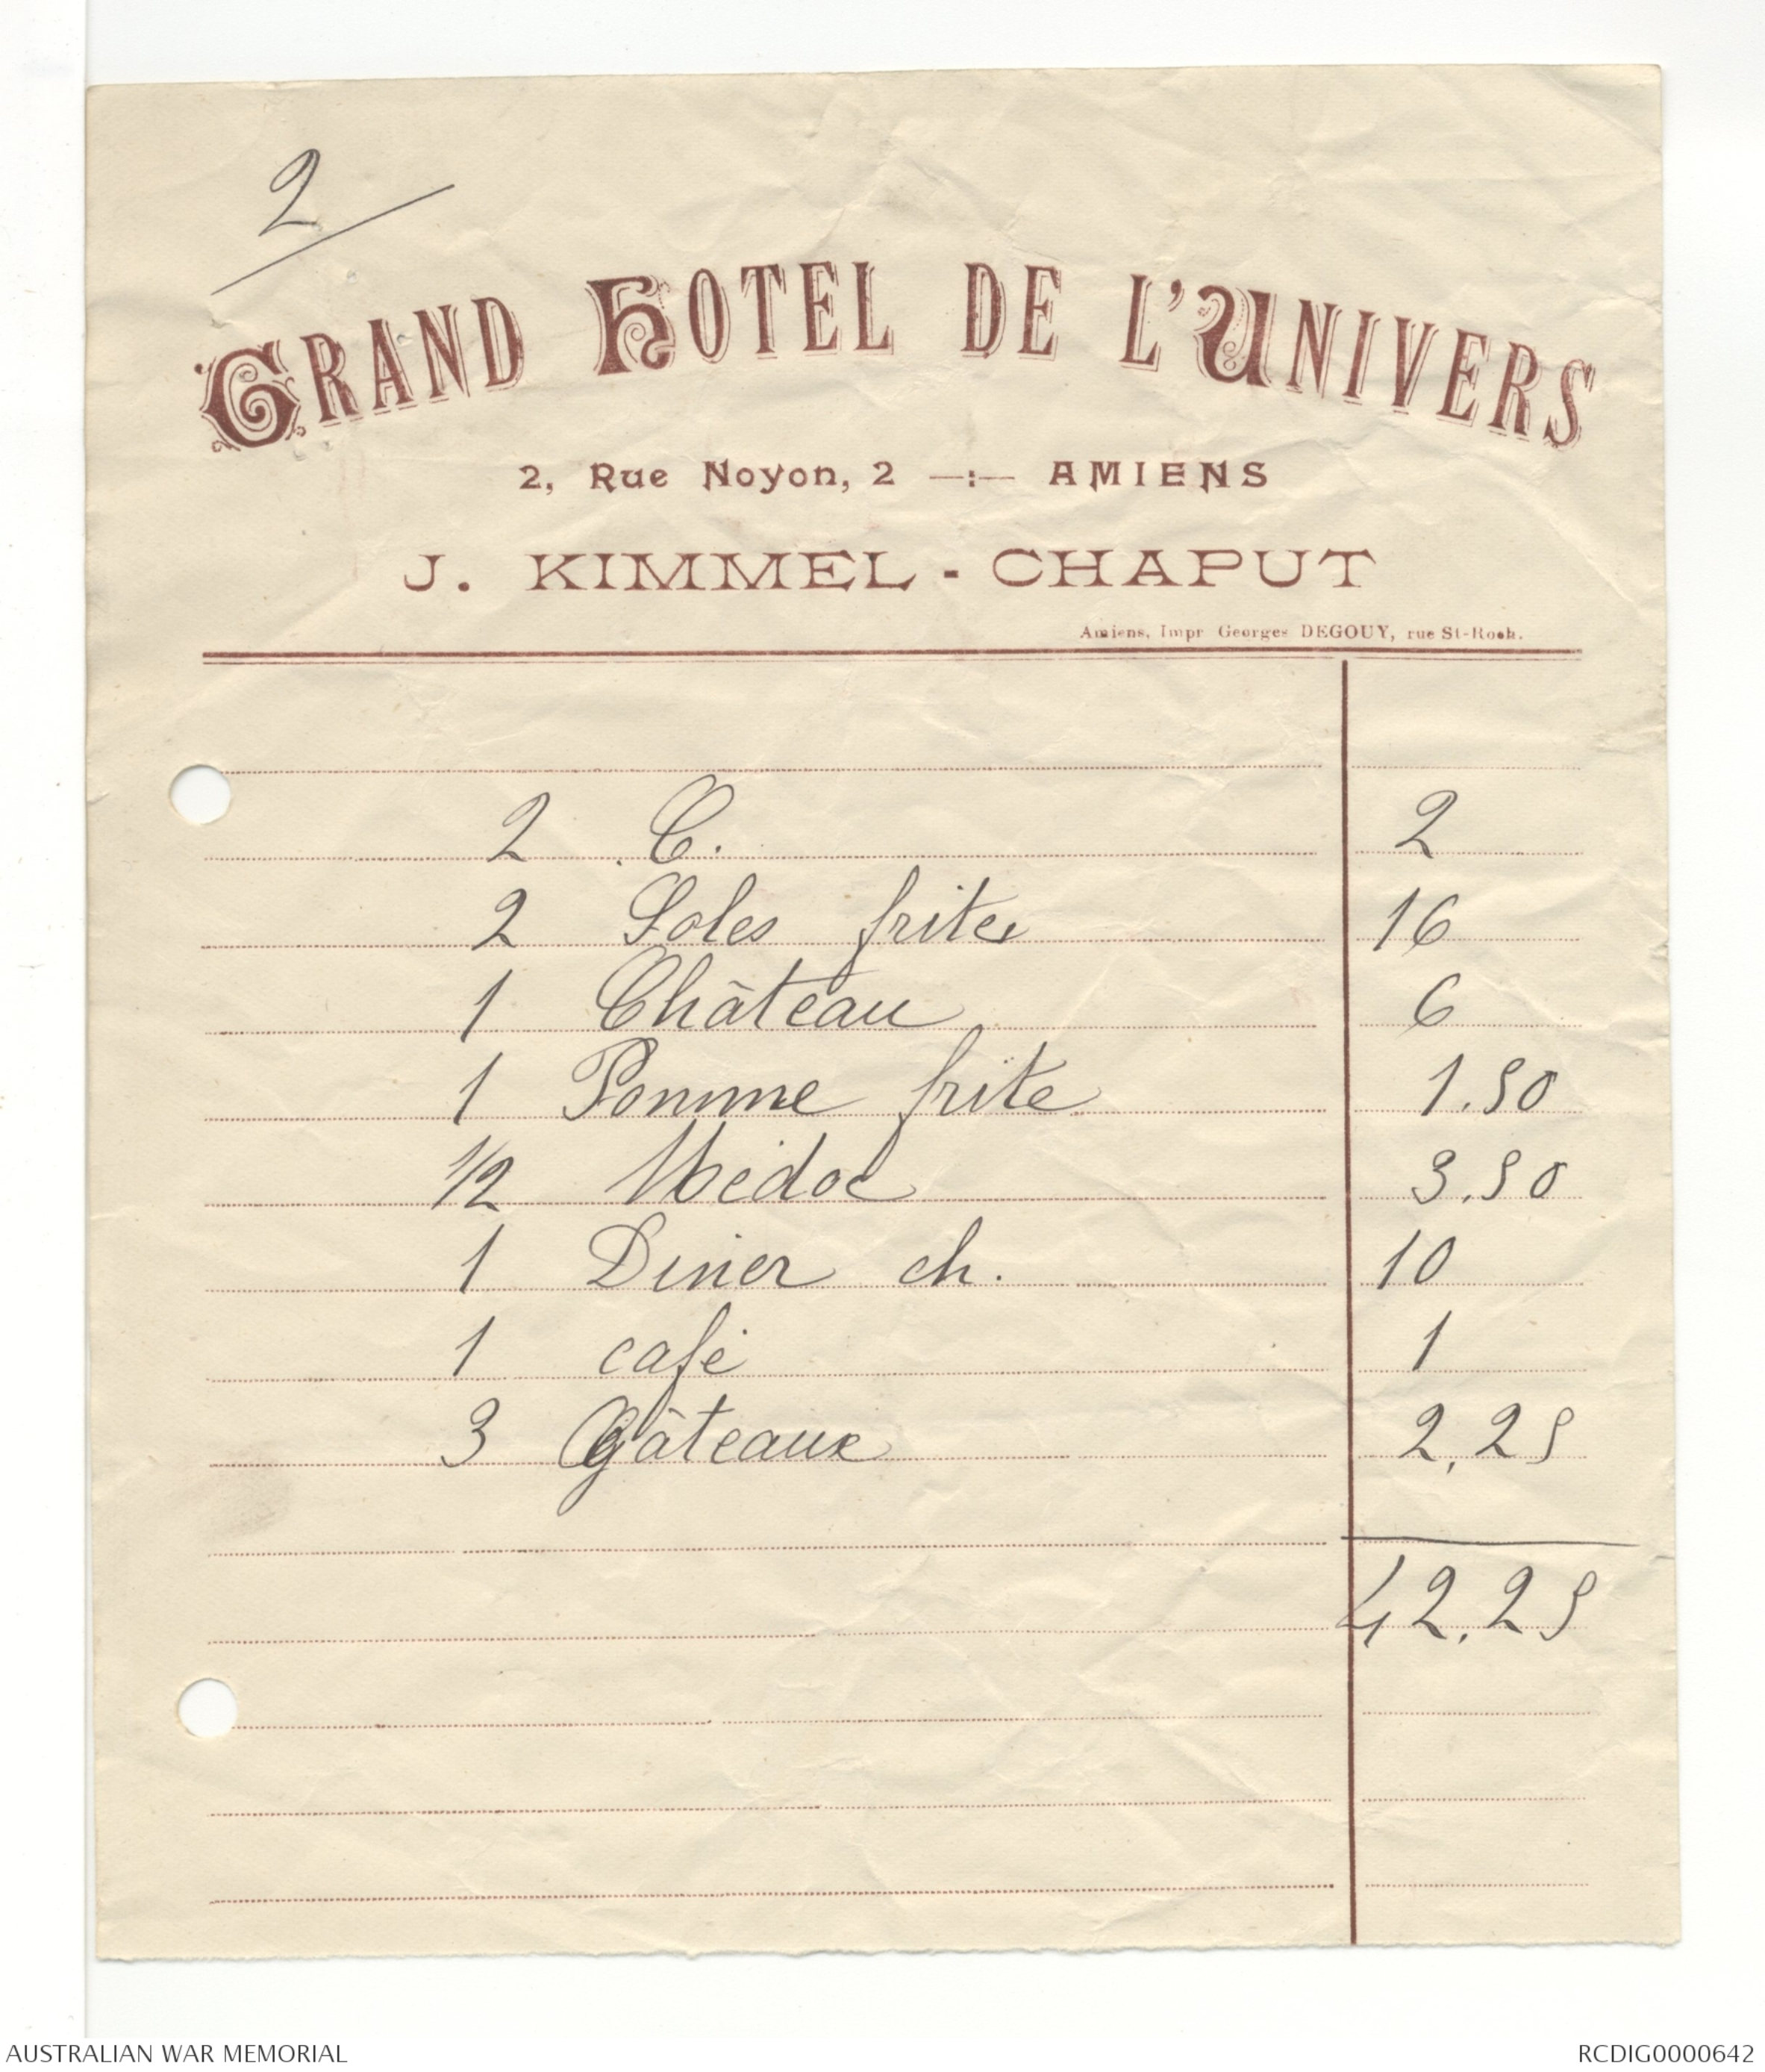 2
GRAND HOTEL DE L'UNIVERS
2, Rue Noyon, 2 —:— AMIENS
J. KIMMEL - CHAPUT
Amiens, Impr Georges DEGOUY, rue St-Roch.
2 C. 2
2 Soles frites 16
1 Château 6
1 Pomme frite 1.50
1/2 Médoc 3.50
1 Diner ch. 10
1 café 1
3 Gâteaux 2,25
42.25
AUSTRALIAN WAR MEMORIAL RCDIG0000642